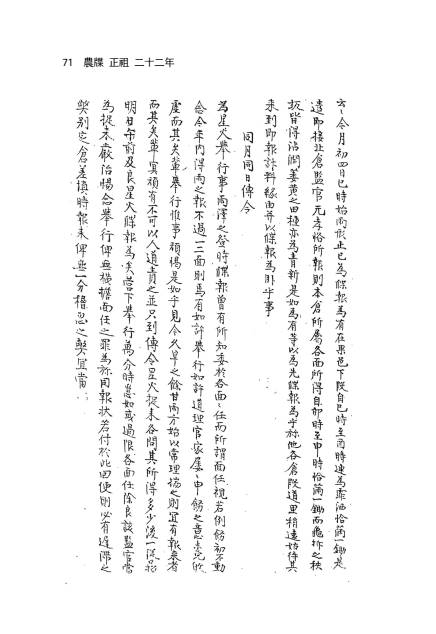 71 農牒 正祖 二十二年
去今月初四日巳時始雨形止已爲牒報爲有在果邑下段自巳時至酉時連爲霏洒恰滿一鋤是
遣卽接北倉監官元孝裕所報則本倉所屬各面所得自卯時至申時恰滿一鋤而龜坼之秧
坂皆得沾潤萎黃之田種亦爲靑新是如爲有等以爲先牒報爲乎旀他各倉段道里稍遠姑待其
來到卽報計料緣由幷以牒報爲臥乎事
同月同日傳令
爲星火擧行事雨澤之登時牒報曾有所知委於各面任而所謂面任視若例飭初不動
念今年內得雨之報不過一二面則焉有如許擧行如許道理官家屢申飭之意
虛而其矣輩擧行惟事頑慢是如乎見今久旱之餘甘雨方始以常理揣之則宜有報來者
而其矣輩冥頑有不可以人道責之並只到傳令星火捉來各問其所得多少後一
明日午前及良星火牒報爲矣營下擧行萬分時急如或過限各面任除良該監官當
爲捉來嚴治惕念擧行俾無橫擔面任之罪爲旀同報狀若付於此回便則必有遲滯之
弊別定倉差趂時報來俾無一分稽忽之弊宜當